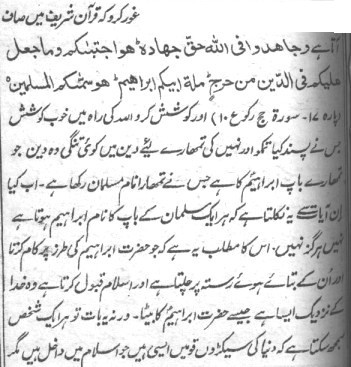 غور کرو کہ قرآن شریف میں صاف
آتا ہے وجاهدوا فی اللہ حق جهادہ ھو اجتبٰکم وما جعل
علیکم فی الدین من حرج ملة ابیکم ابراھیم ھو سمٰکم المسلمین
(پارہ ۱۷ - سورة حج رکوع ۱۰) اور کوشش کرو اللہ کی راہ میں خوب کوشش
جس نے پسند کیا تمکو اور نہیں کی تمھارے لئے دین میں کوئی تنگی وہ دین جو
تمھارے باپ ابراہیم کا ہے جس نے تمھارا نام مسلمان رکھا ہے - اب کیا
اِن آیات سے یہ نکلتا ہے کہ ہر ایک مسلمان کے باپ کا نام ابراہیم ہوتا ہے
نہیں ہرگز نہیں - اس کا مطلب یہ ہے کہ جو حضرت ابراہیم کی طرز پر کام کرتا
اور اُن کے بتائے ہوئے رستہ پر چلتا ہے اور اسلام قبول کرتا ہے وہ خدا
کے نزدیک ایسا ہے جیسے حضرت ابراہیم کا بیٹا - ورنہ یہ بات تو ہر ایک شخص
سمجھ سکتا ہے کہ دنیا کی سیکڑوں قومیں ایسی ہیں جو اسلام میں داخل ہیں مگر